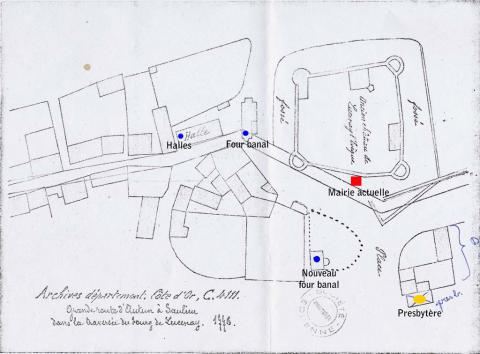 fossé
fossé
Ancien château de
Lucenay l'Evêque
Halle
Halles
Four banal
Mairie actuelle
Place
Nouveau
four banal
Presbytère
presb.
Archives département. Côte d'Or, C. 4111.
Grande route d'Autun à Saulieu
dans la traversée du bourg de Lucenay. 1776.